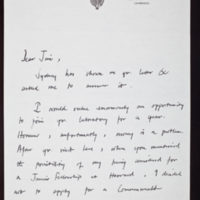 Dear Jim,
Sydney has shown me your letter &
asked me to answer it.
I would value enormously an opportunity
to join your laboratory for a year.
However, unfortunately, money is a problem.
After your visit here, when you mentioned
the possibility of my being considered for
a Junior Fellowship at Harvard, I decided
not to apply for a Commonwealth